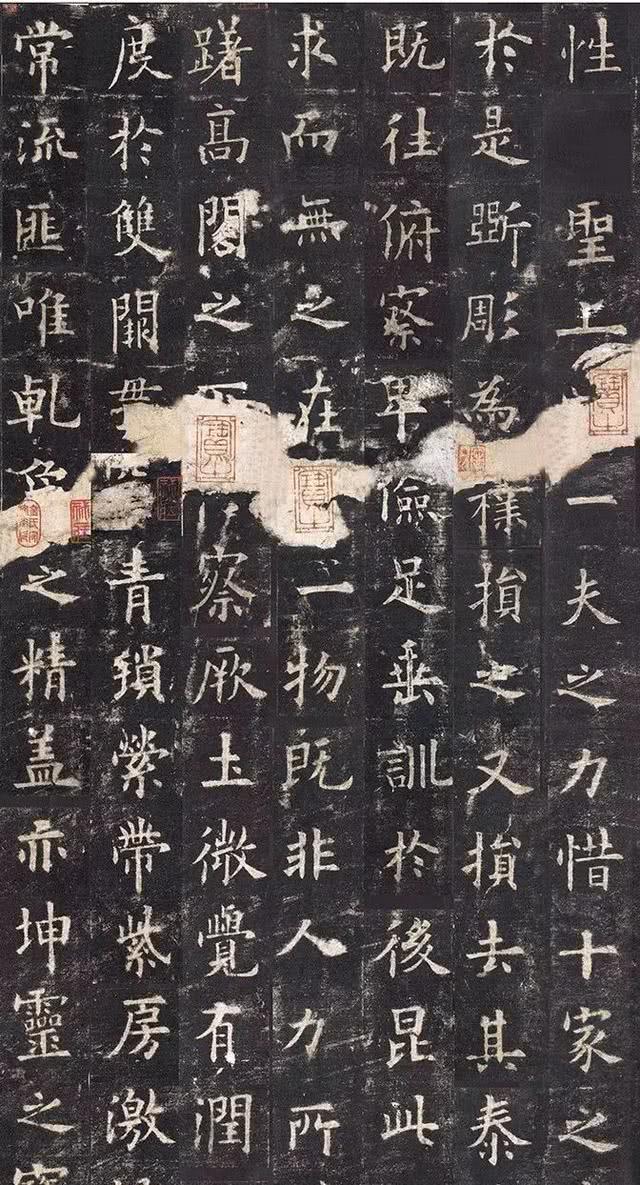 性聖上一夫之力惜十家之
於是斵彫為樸損之又損去其泰
既往俯察卑儉足垂訓於後昆此
求而無之在一物既非人力所
躇高閣之察厥土微覺有潤
度於雙闕貫青瑣縈帶紫房激
常流匪唯乹之精盖亦坤靈之